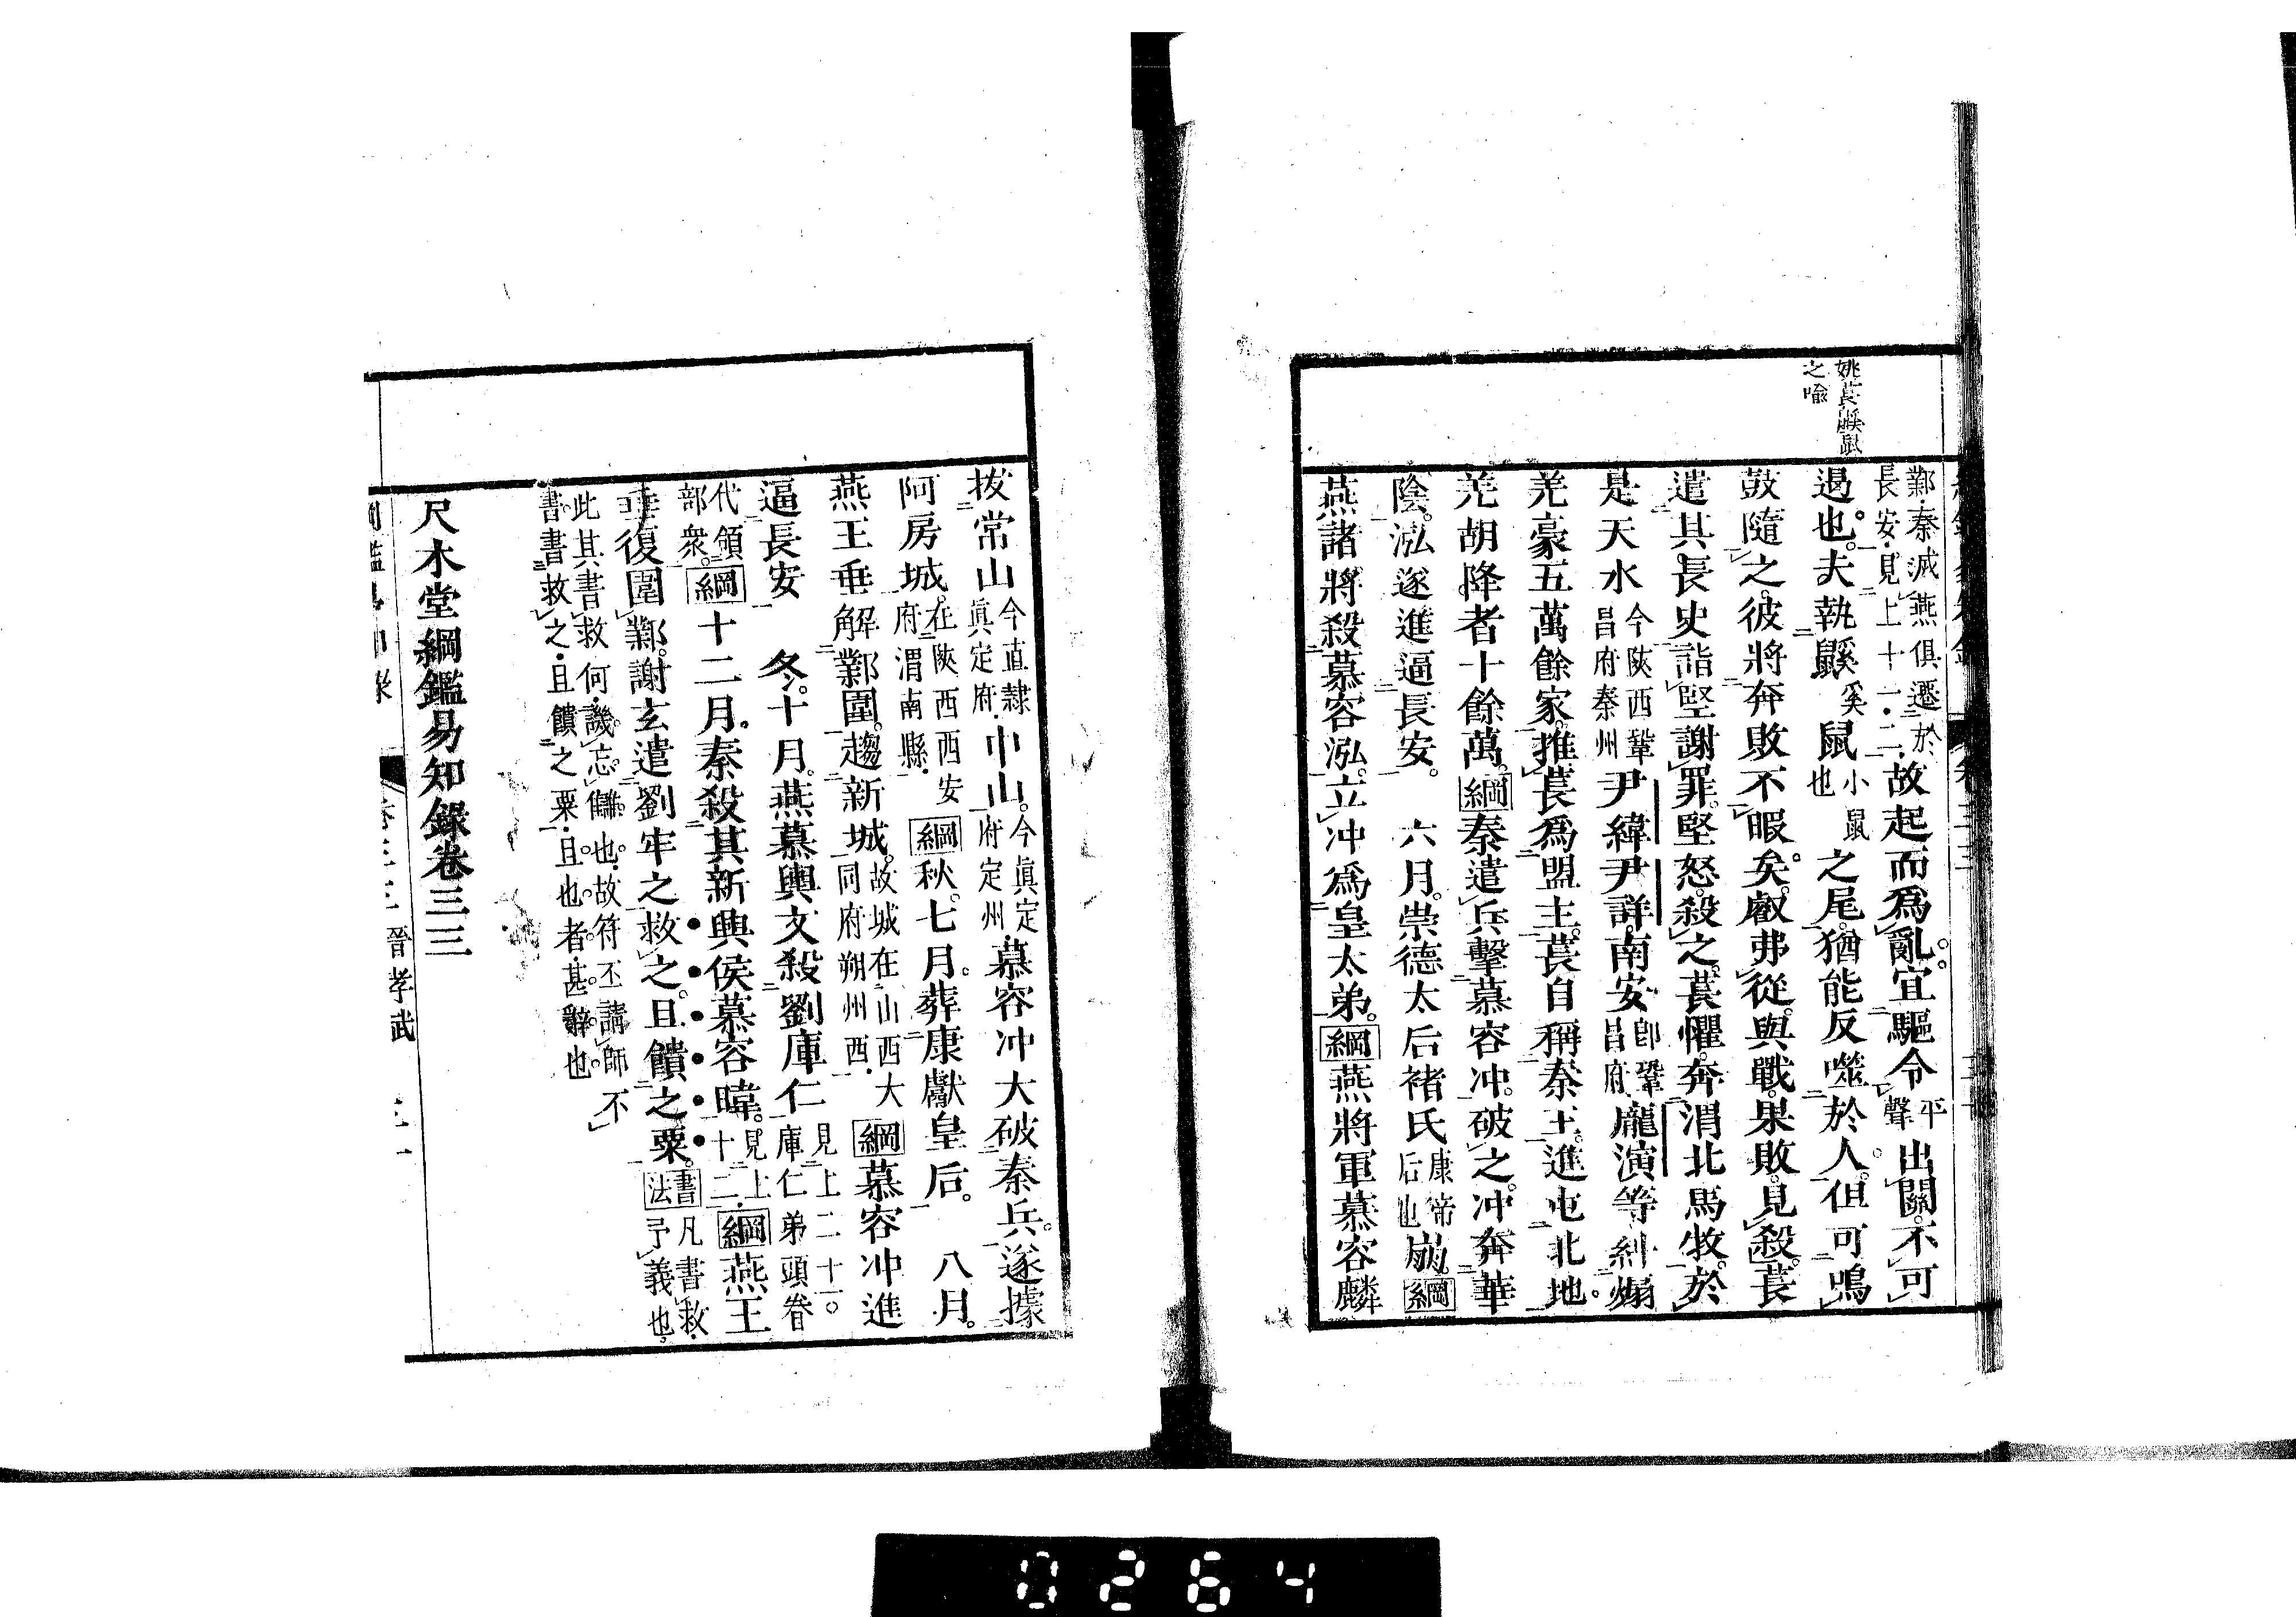 姚萇鼷鼠
之喻
鄴秦滅燕俱遷於
長安見上十一二故起而爲亂宜驅令平聲出關不可
遏也夫執鼷奚鼠小鼠也之尾猶能反噬於人但可鳴
鼓隨之彼將奔敗不暇矣叡弗從與戰果敗見殺萇
遣其長史詣堅謝罪堅怒殺之萇懼奔渭北馬牧於
是天水今陝西鞏昌府秦州尹緯尹詳南安卽鞏昌府龐演等糾煽
羌豪五萬餘家推萇爲盟主萇自稱秦王進屯北地
羌胡降者十餘萬綱秦遣兵擊慕容冲破之冲奔華
陰泓遂進逼長安 六月崇德太后褚氏康帝后也崩綱
燕諸將殺慕容泓立冲爲皇太弟綱燕將軍慕容麟
拔常山今直隸眞定府中山今眞定府定州慕容冲大破秦兵遂據
阿房城在陝西西安府渭南縣綱秋七月葬康獻皇后 八月
燕王垂解鄴圍趨新城故城在山西大同府朔州西綱慕容冲進
逼長安 冬十月燕慕輿文殺劉庫仁見上二十一○庫仁弟頭眷
代領部衆綱十二月秦殺其新興侯慕容暐見上十二綱燕王
垂復圍鄴謝玄遣劉牢之救之且饋之粟書法凡書救予義也
此其書救何譏忘讎也故符丕請師不
書書救之且饋之粟且也者甚辭也
尺木堂綱鑑易知錄卷三三
晉孝武
0264